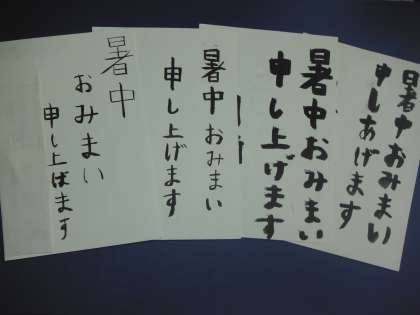 暑中おみまい
申しあげます
暑中おみまい
申し上げます
暑中おみまい
申し上げます
暑中
おみまい
申し上ばます